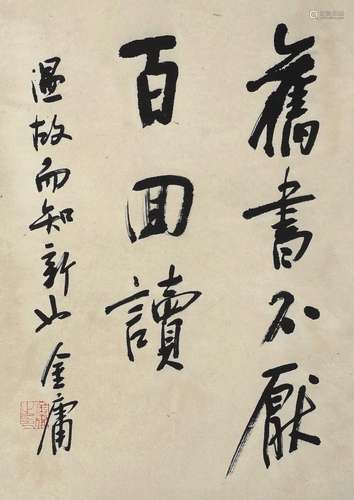 舊書不厭
百回讀
溫故而知新也
金庸